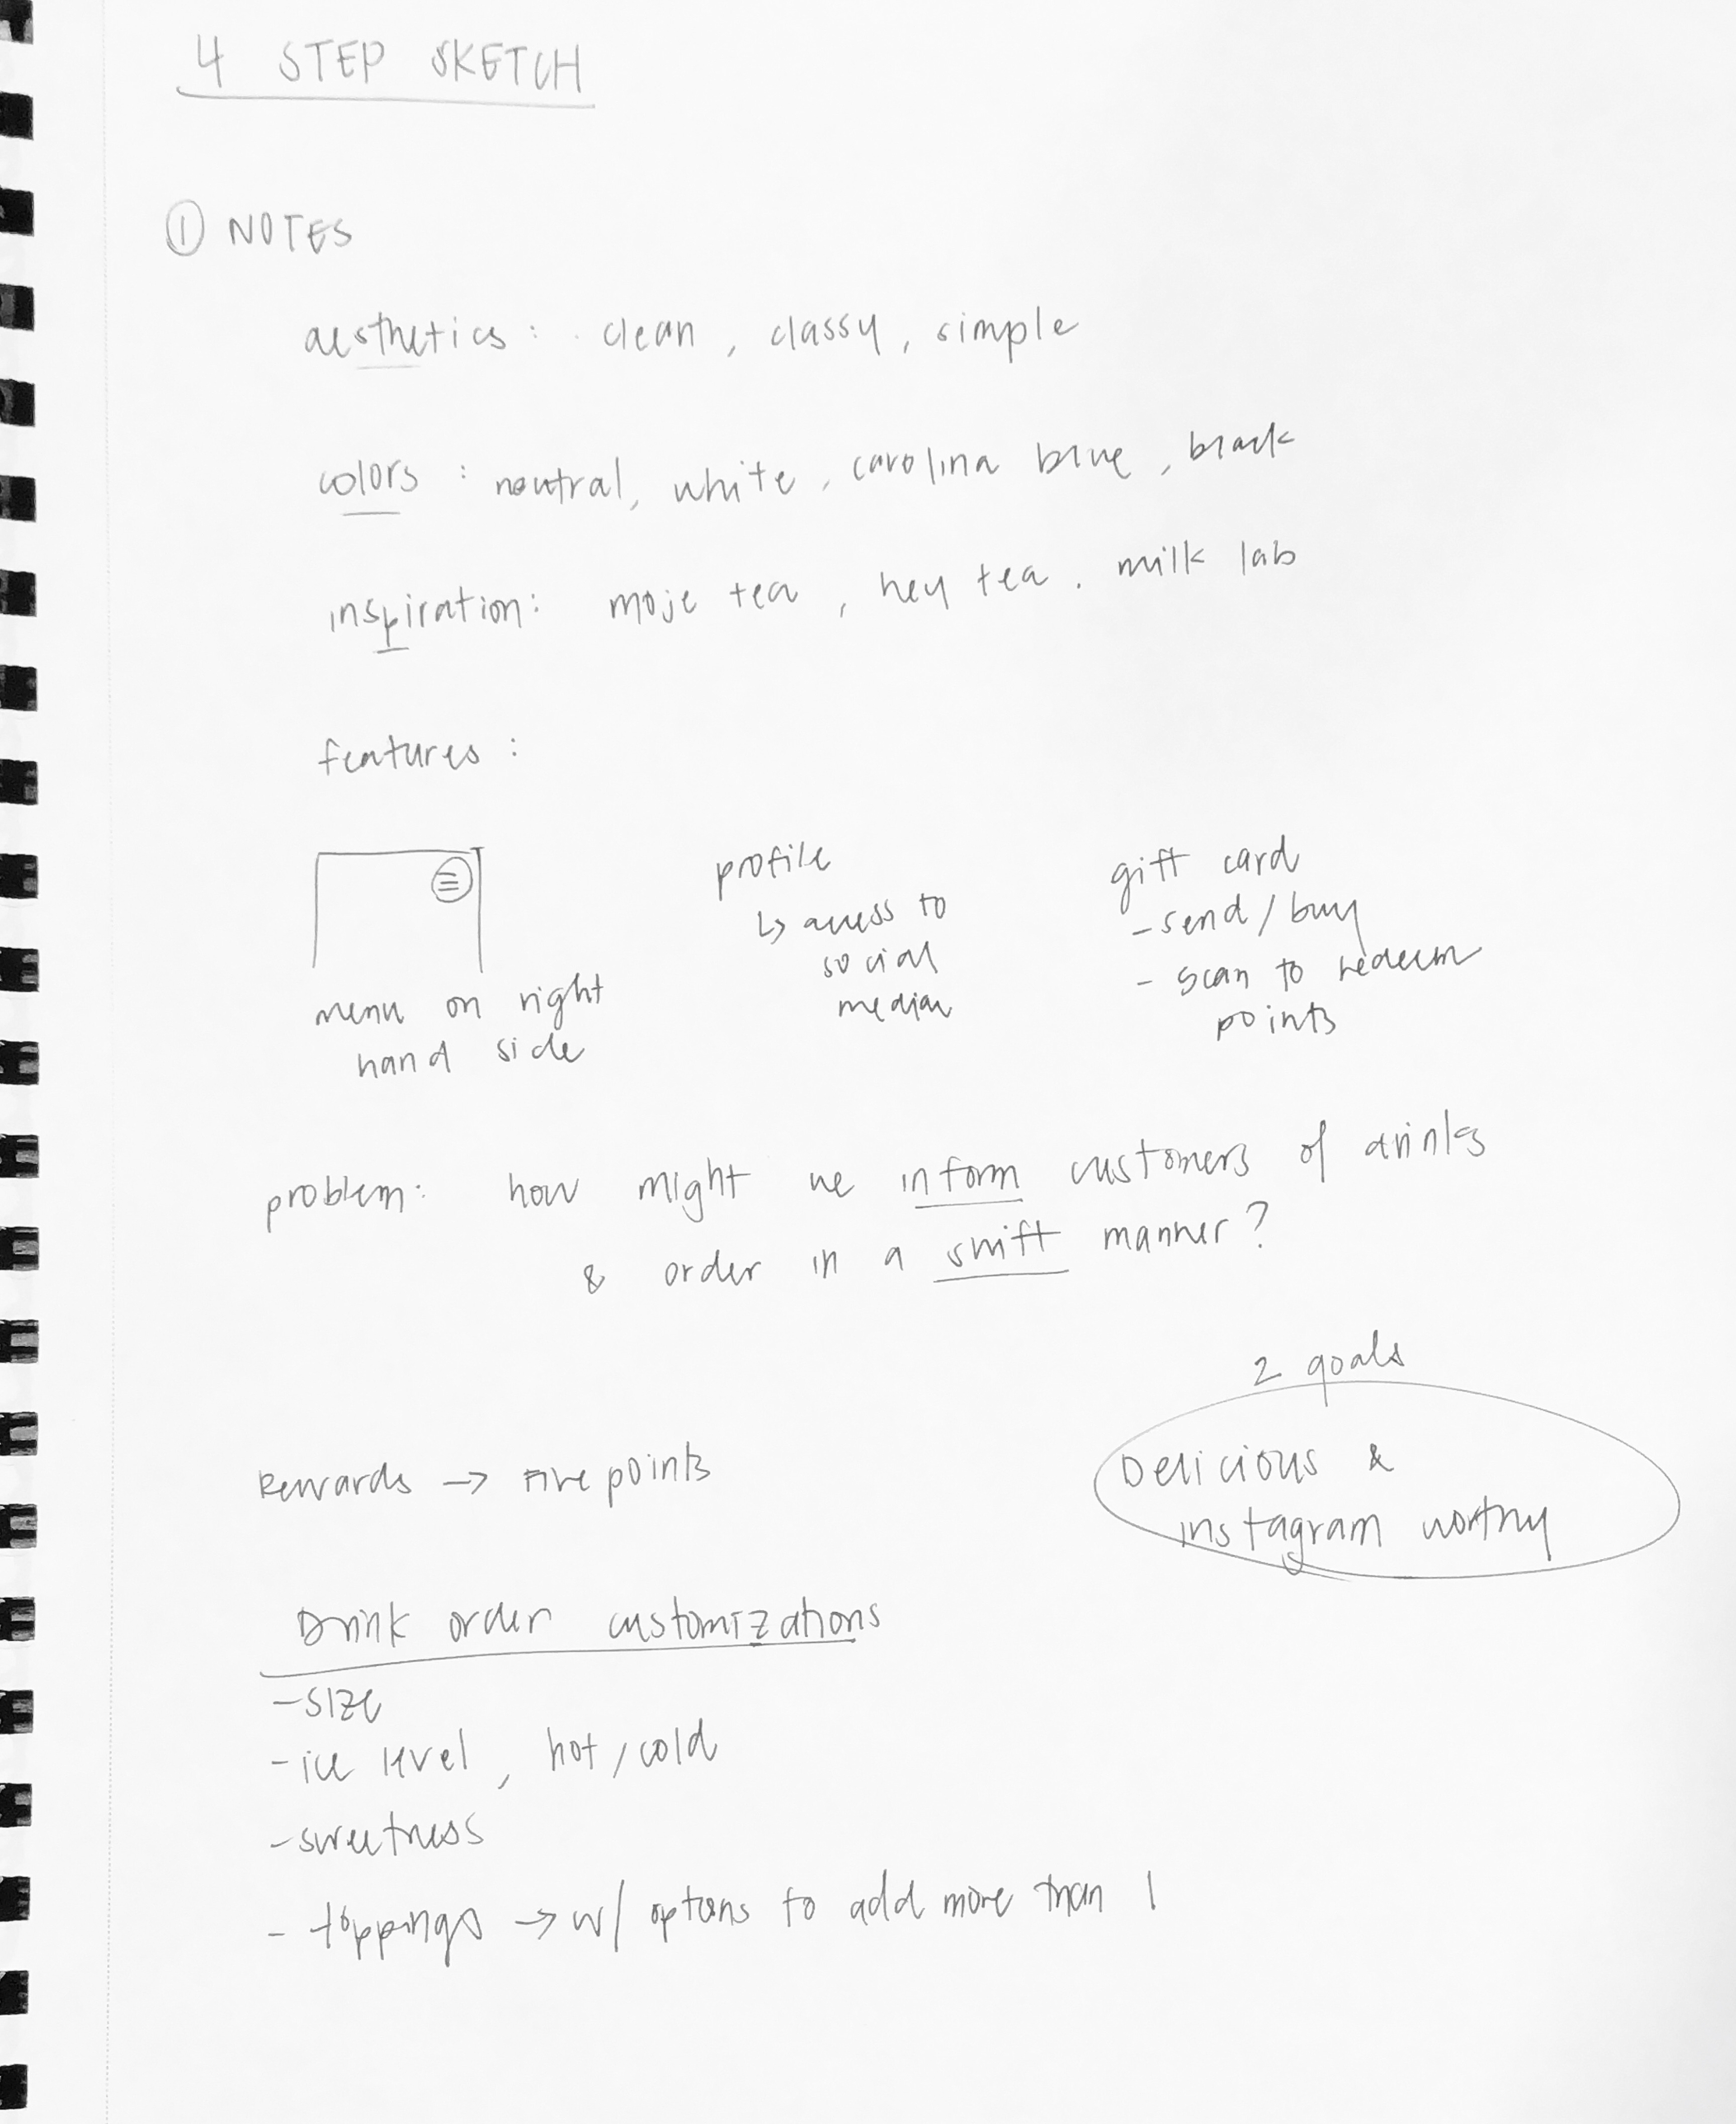 4 STEP SKETCH
① NOTES
aesthetics: clean, classy, simple
colors: neutral, white, carolina blue, black
inspiration: moje tea, hey tea, milk lab
features:
menu on right
hand side
profile
↳ access to
social
media
gift card
- send / buy
- scan to redeem
points
problem: how might we inform customers of drinks
& order in a swift manner?
2 goals
Delicious &
instagram worthy
Rewards → points
Drink order customizations
- size
- ice level, hot / cold
- sweetness
- toppings → w/ options to add more than 1